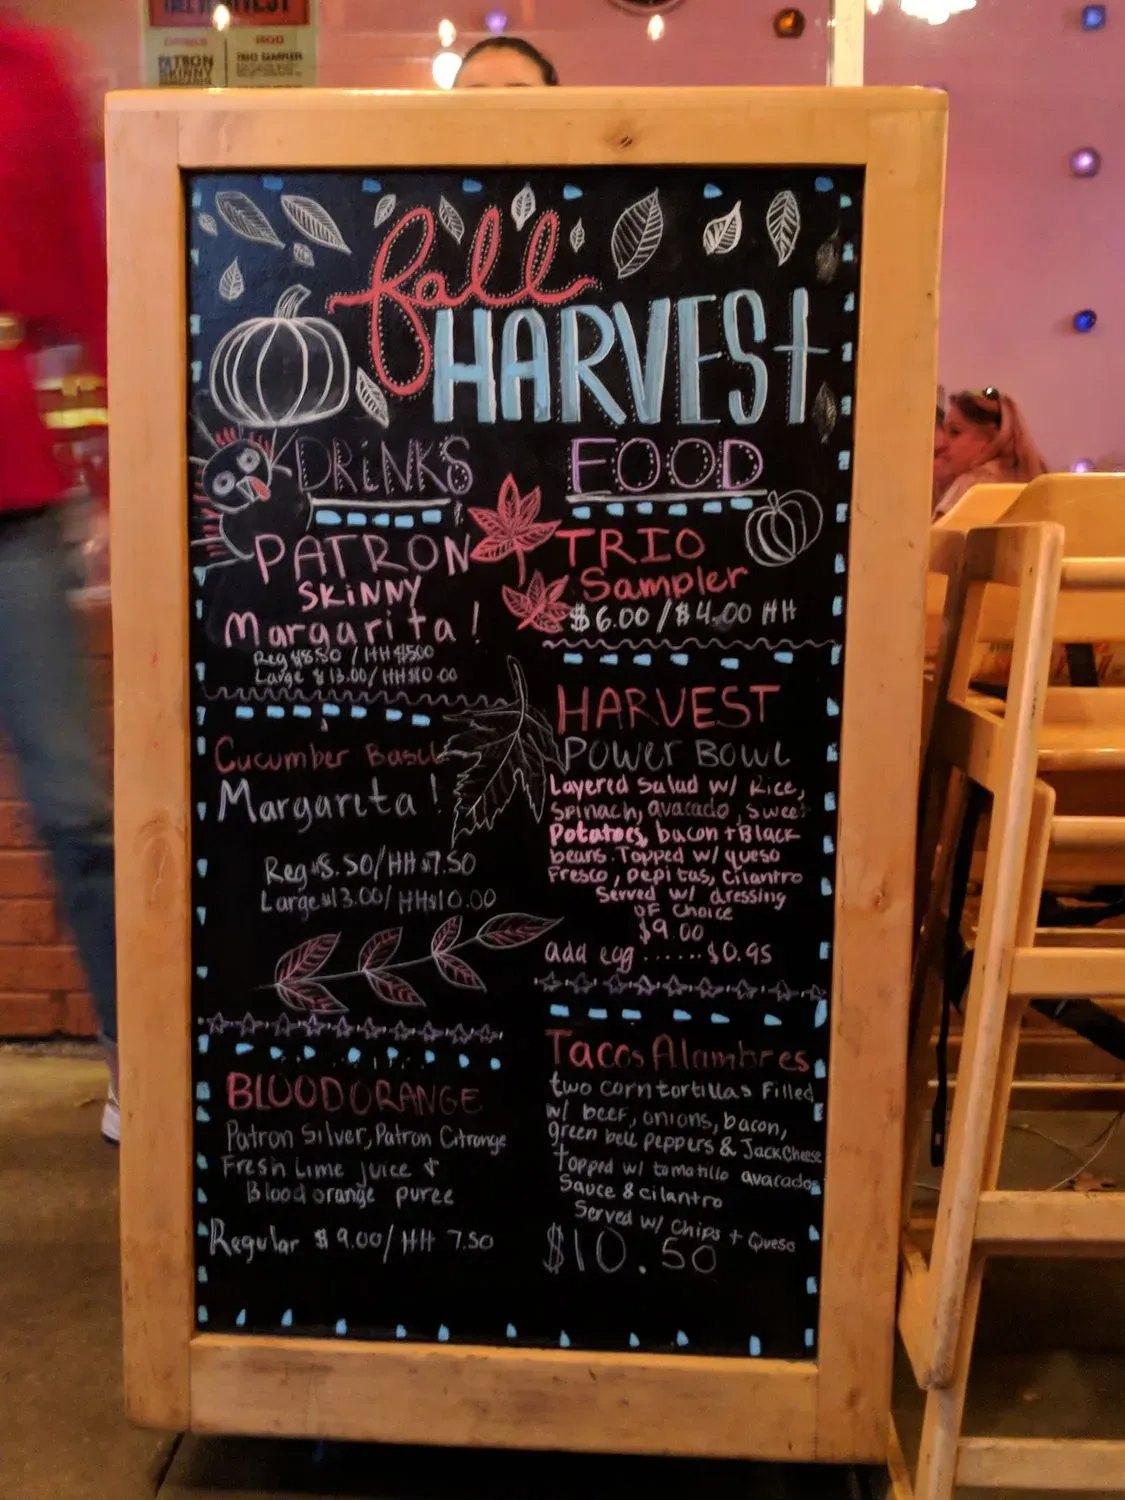 PATRON
SKINNY
fall
HARVEST
DRINKS
PATRON
SKINNY
Margarita!
Reg $8.50 / HH $500
Large $13.00/ HH $10.00
Cucumber Basil
Margarita!
Reg $8.50/HH $7.50
Large $13.00/ HH $10.00
BLOOD ORANGE
Patron Silver, Patron Citronge
Fresh Lime juice +
Blood orange puree
Regular $9.00/ HH 7.50
FOOD
TRIO
Sampler
$6.00 /$4.00 HH
HARVEST
POWER BOWL
Layered Salad w/ Rice,
Spinach, avacado, sweet
Potatoes, bacon + Black
beans. Topped w/ queso
Fresco, pepitas, cilantro
Served w/ dressing
OF Choice
$9.00
add egg ...... $0.95
Tacos Alambres
two corn tortillas Filled
w/ beef, onions, bacon,
green bell peppers & Jack Cheese
topped w/ tomatillo avacados
Sauce & cilantro
Served w/ chips + Queso
$10.50